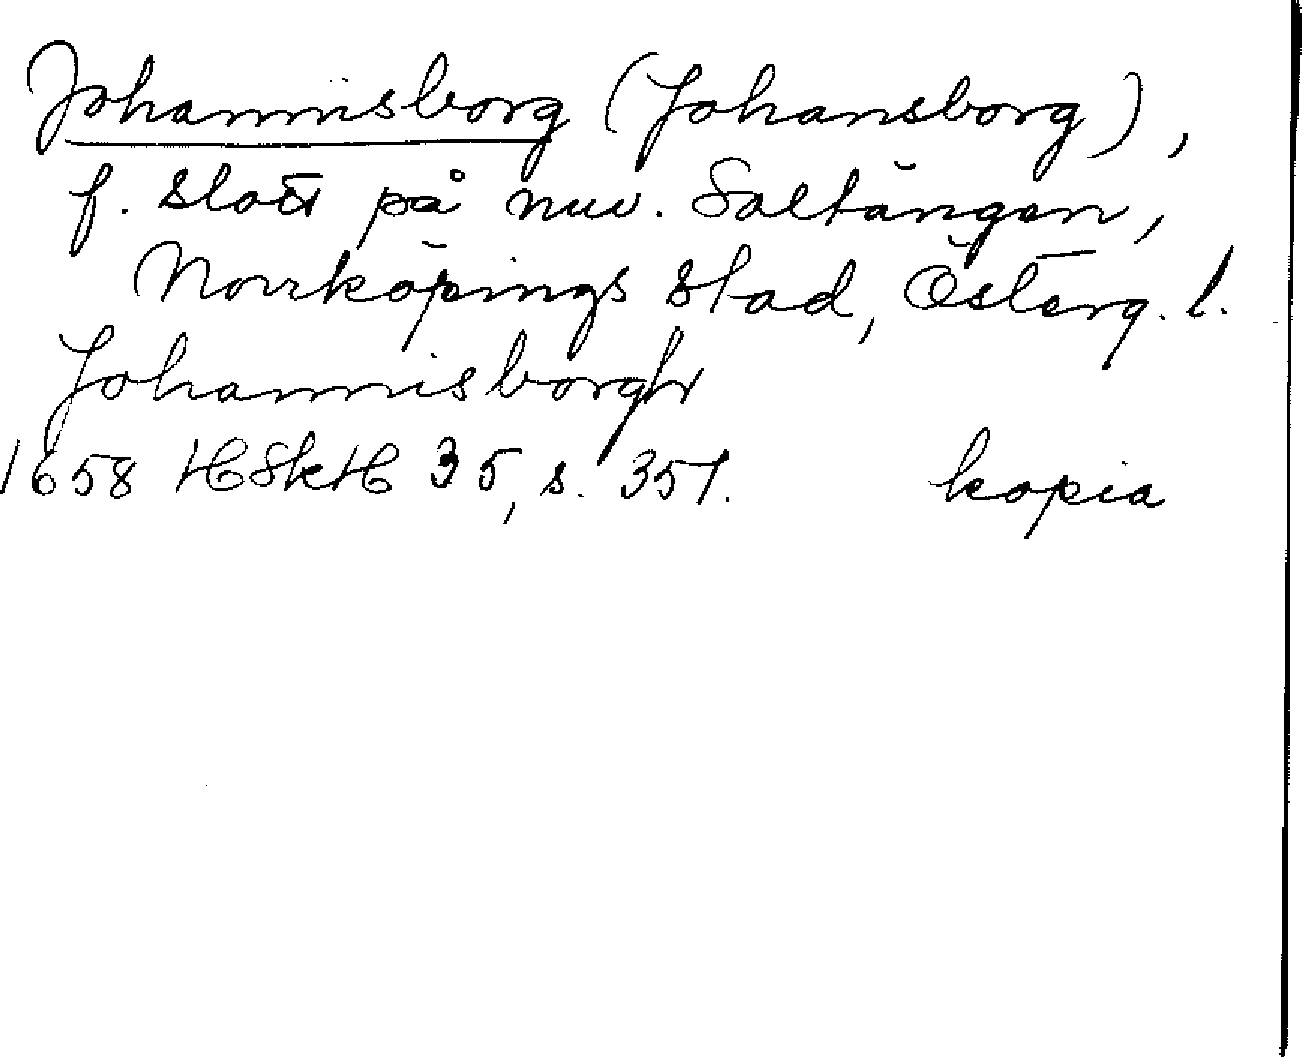 Johannisborg (Johansborg),
f. slott på nuv. Saltängen,
Norrköpings stad, Österg. l.
Johannisborgh
1658 HSkH 35, s. 351. kopia